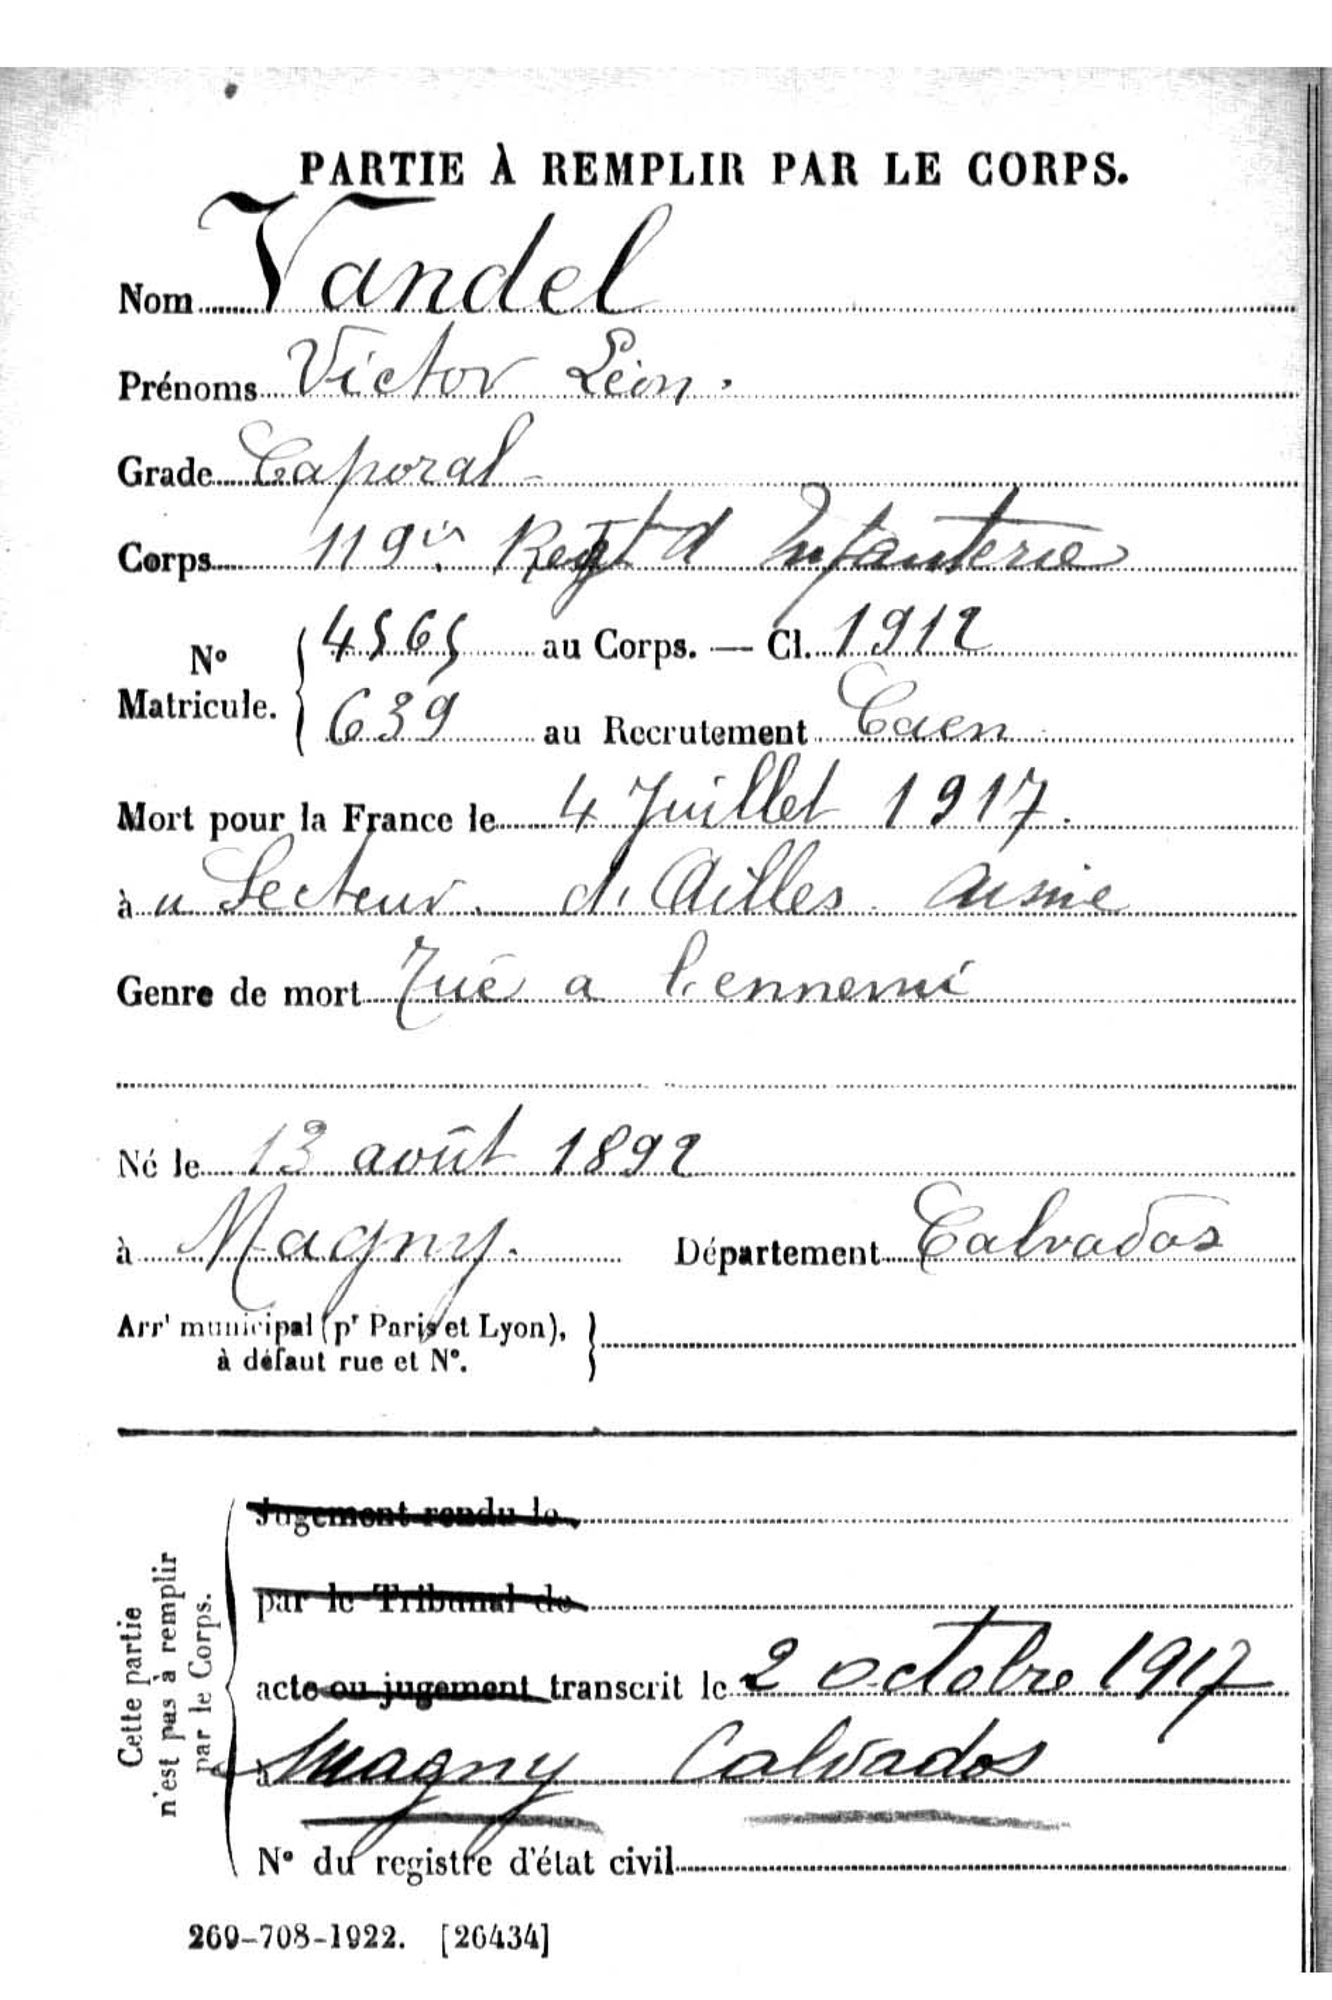 PARTIE À REMPLIR PAR LE CORPS.
Nom Vandel
Prénoms Victor Léon.
Grade Caporal
Corps 119e Regt d Infanterie
N° Matricule. 4565 au Corps. — Cl. 1912
639 au Recrutement Caen
Mort pour la France le 4 Juillet 1917.
à u Secteur d'Ailles Aisne
Genre de mort Tué a l'ennemi
Né le 13 août 1892
à Magny. Département Calvados
Arrt municipal (pr Paris et Lyon),
à défaut rue et N°.
Cette partie
n'est pas à remplir
par le Corps.
Jugement rendu le
par le Tribunal de
acte ou jugement transcrit le 2 octobre 1917
à Magny Calvados
N° du registre d'état civil
269-708-1922. [26434]